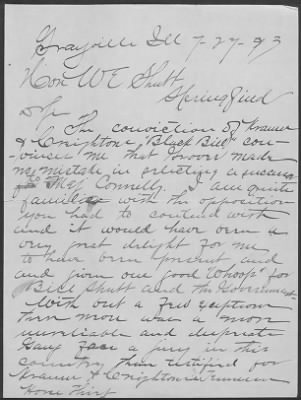 Grayville Ill 7-27-93
Hon W E Shutt
Springfield
The conviction of Kramer
& Crightone, "Black Bill" con-
vinces me that Grover made
no mistake in selecting a successor
to Maj Connelly. I am quite
familiar with the opposition
you had to contend with
and it would have been a
very great delight for me
to have been present and
and given one good "Whoop" for
Bill Shutt and the Government
With out a few exceptions
there never was a more
unreliable and desperate
Gang face a jury in this
country than testified for
Kramer & Crightone
Horse Thief